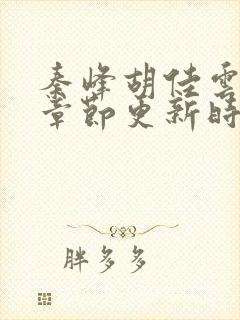 秦峰胡佳雲
章節更新時
胖多多